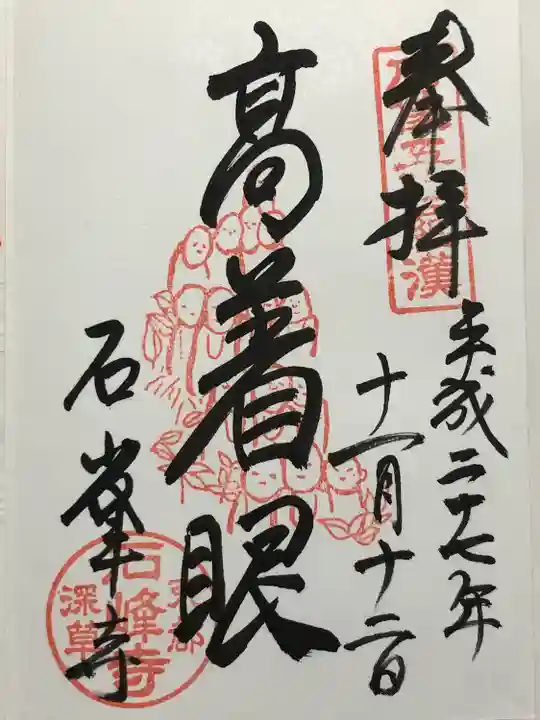 奉拝
平成二十七年
十一月十二日
高着眼
石峯寺
石峰寺
深草
京都